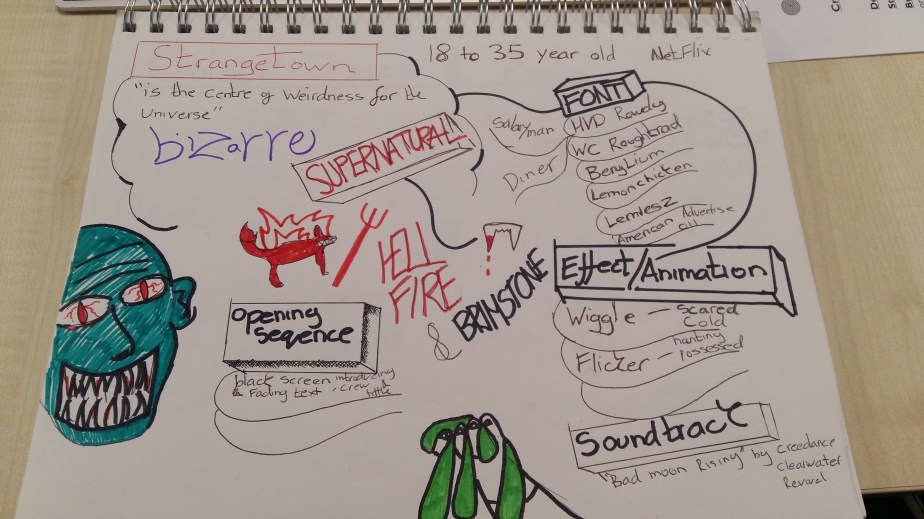 Strangetown
18 to 35 year old
Netflix
"is the centre of Weirdness for the
Universe"
bizarre
SUPERNATURAL!!
FONT
Salaryman
Diner
HVD Rowdy
WC Roughtrad
Beryllium
Lemonchicken
Lemiesz
American Advertise
Effect/Animation
Wiggle - scared
cold
Flicker - hanting
possessed
HELL
FIRE
& BRIMSTONE
Opening
Seqence
black screen introducing
& Fading text, crew &
tittle
Soundtrack
"Bad moon Rising" by Creedance
Clearwater
Revival